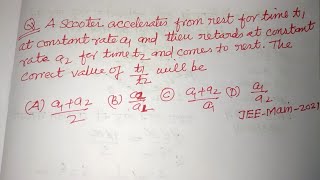 Q. A scooter accelerates from rest for time t₁
at constant rate a₁ and then retards at constant
rate a₂ for time t₂ and comes to rest. The
correct value of t₁/t₂ will be
(A) a₁+a₂/2 (B) a₂/a₁ (C) a₁+a₂/a₁ (D) a₁/a₂
JEE-Main-2021